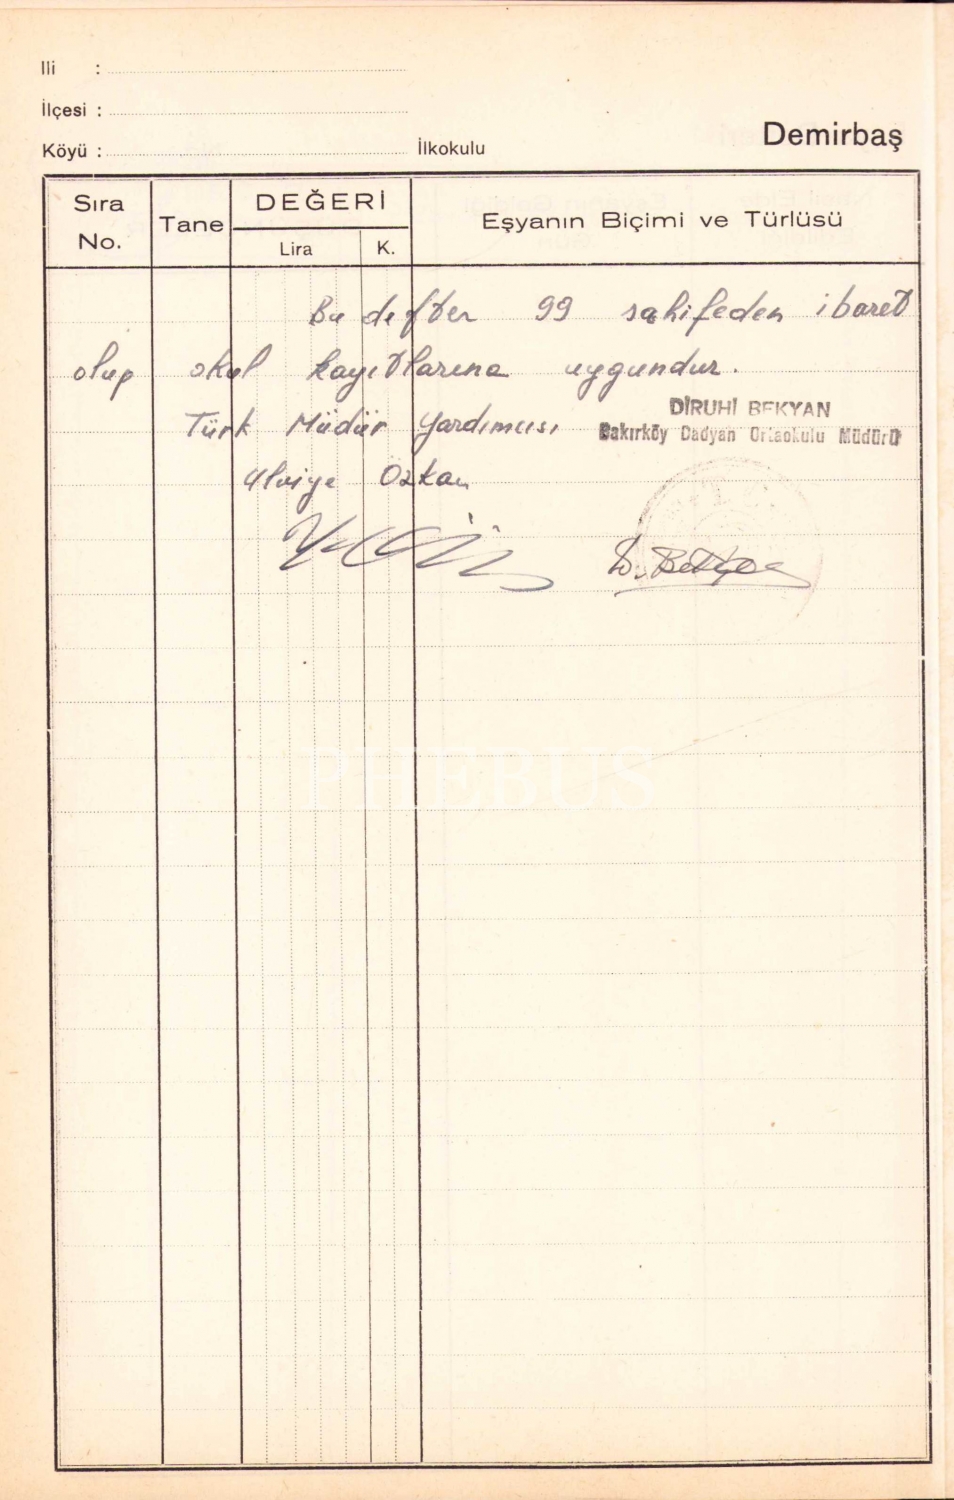 Ili :
İlçesi :
Köyü : İlkokulu
Demirbaş
Sıra No.
Tane
DEĞERİ
Lira K.
Eşyanın Biçimi ve Türlüsü
Bu defter 99 sahifeden ibaret
olup okul kayıtlarına uygundur.
DİRUHİ BEKYAN
Türk Müdür Yardımcısı
Bakırköy Dadyan Ortaokulu Müdürü
Ulviye Özkan
PHEBUS